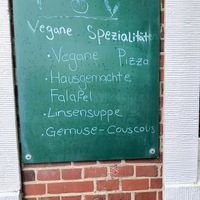 Vegane Spezialität
• Vegane Pizza
• Hausgemachte
Falafel
• Linsensuppe
• Gemüse-Couscous